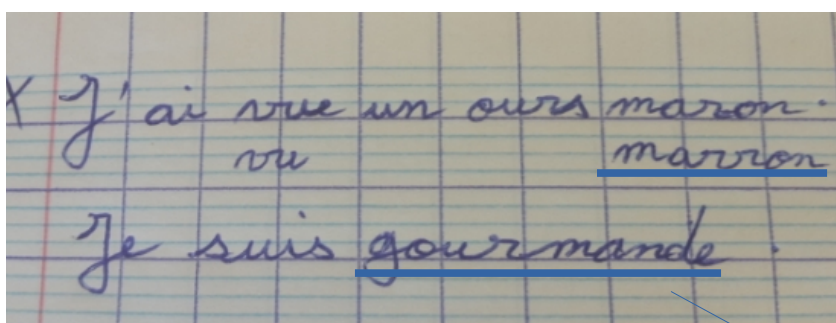 X J'ai vue un ours maron.
vu marron
Je suis gourmande.